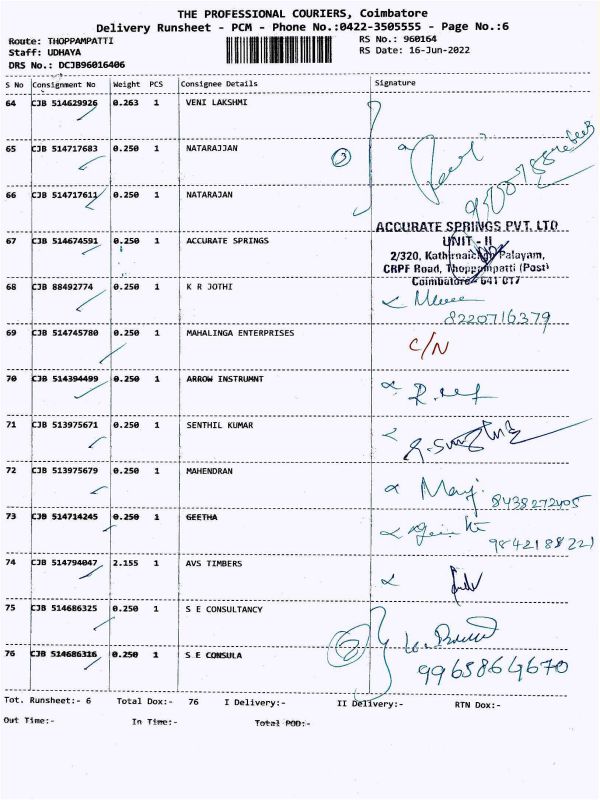 THE PROFESSIONAL COURIERS, Coimbatore
Delivery Runsheet - PCM - Phone No.:0422-3505555 - Page No.:6
Route: THOPPAMPATTI RS No.: 960164
Staff: UDHAYA RS Date: 16-Jun-2022
DRS No.: DCJB96016406
S No Consignment No Weight PCS Consignee Details Signature
64 CJB 514629926 0.263 1 VENI LAKSHMI
65 CJB 514717683 0.250 1 NATARAJJAN 3
66 CJB 514717611 0.250 1 NATARAJAN
ACCURATE SPRINGS PVT. LTD
67 CJB 514674591 0.250 1 ACCURATE SPRINGS UNIT - II
2/320, Kathirnaickan Palayam,
CRPF Road, Thoppampatti (Post)
Coimbatore - 641 017
68 CJB 88492774 0.250 1 K R JOTHI
8220716379
69 CJB 514745780 0.250 1 MAHALINGA ENTERPRISES C/N
70 CJB 514394499 0.250 1 ARROW INSTRUMNT
71 CJB 513975671 0.250 1 SENTHIL KUMAR
72 CJB 513975679 0.250 1 MAHENDRAN
8438272405
73 CJB 514714245 0.250 1 GEETHA
9842188221
74 CJB 514794047 2.155 1 AVS TIMBERS
75 CJB 514686325 0.250 1 S E CONSULTANCY
76 CJB 514686316 0.250 1 S E CONSULA 9965864670
Tot. Runsheet:- 6 Total Dox:- 76 I Delivery:- II Delivery:- RTN Dox:-
Out Time:- In Time:- Total POD:-